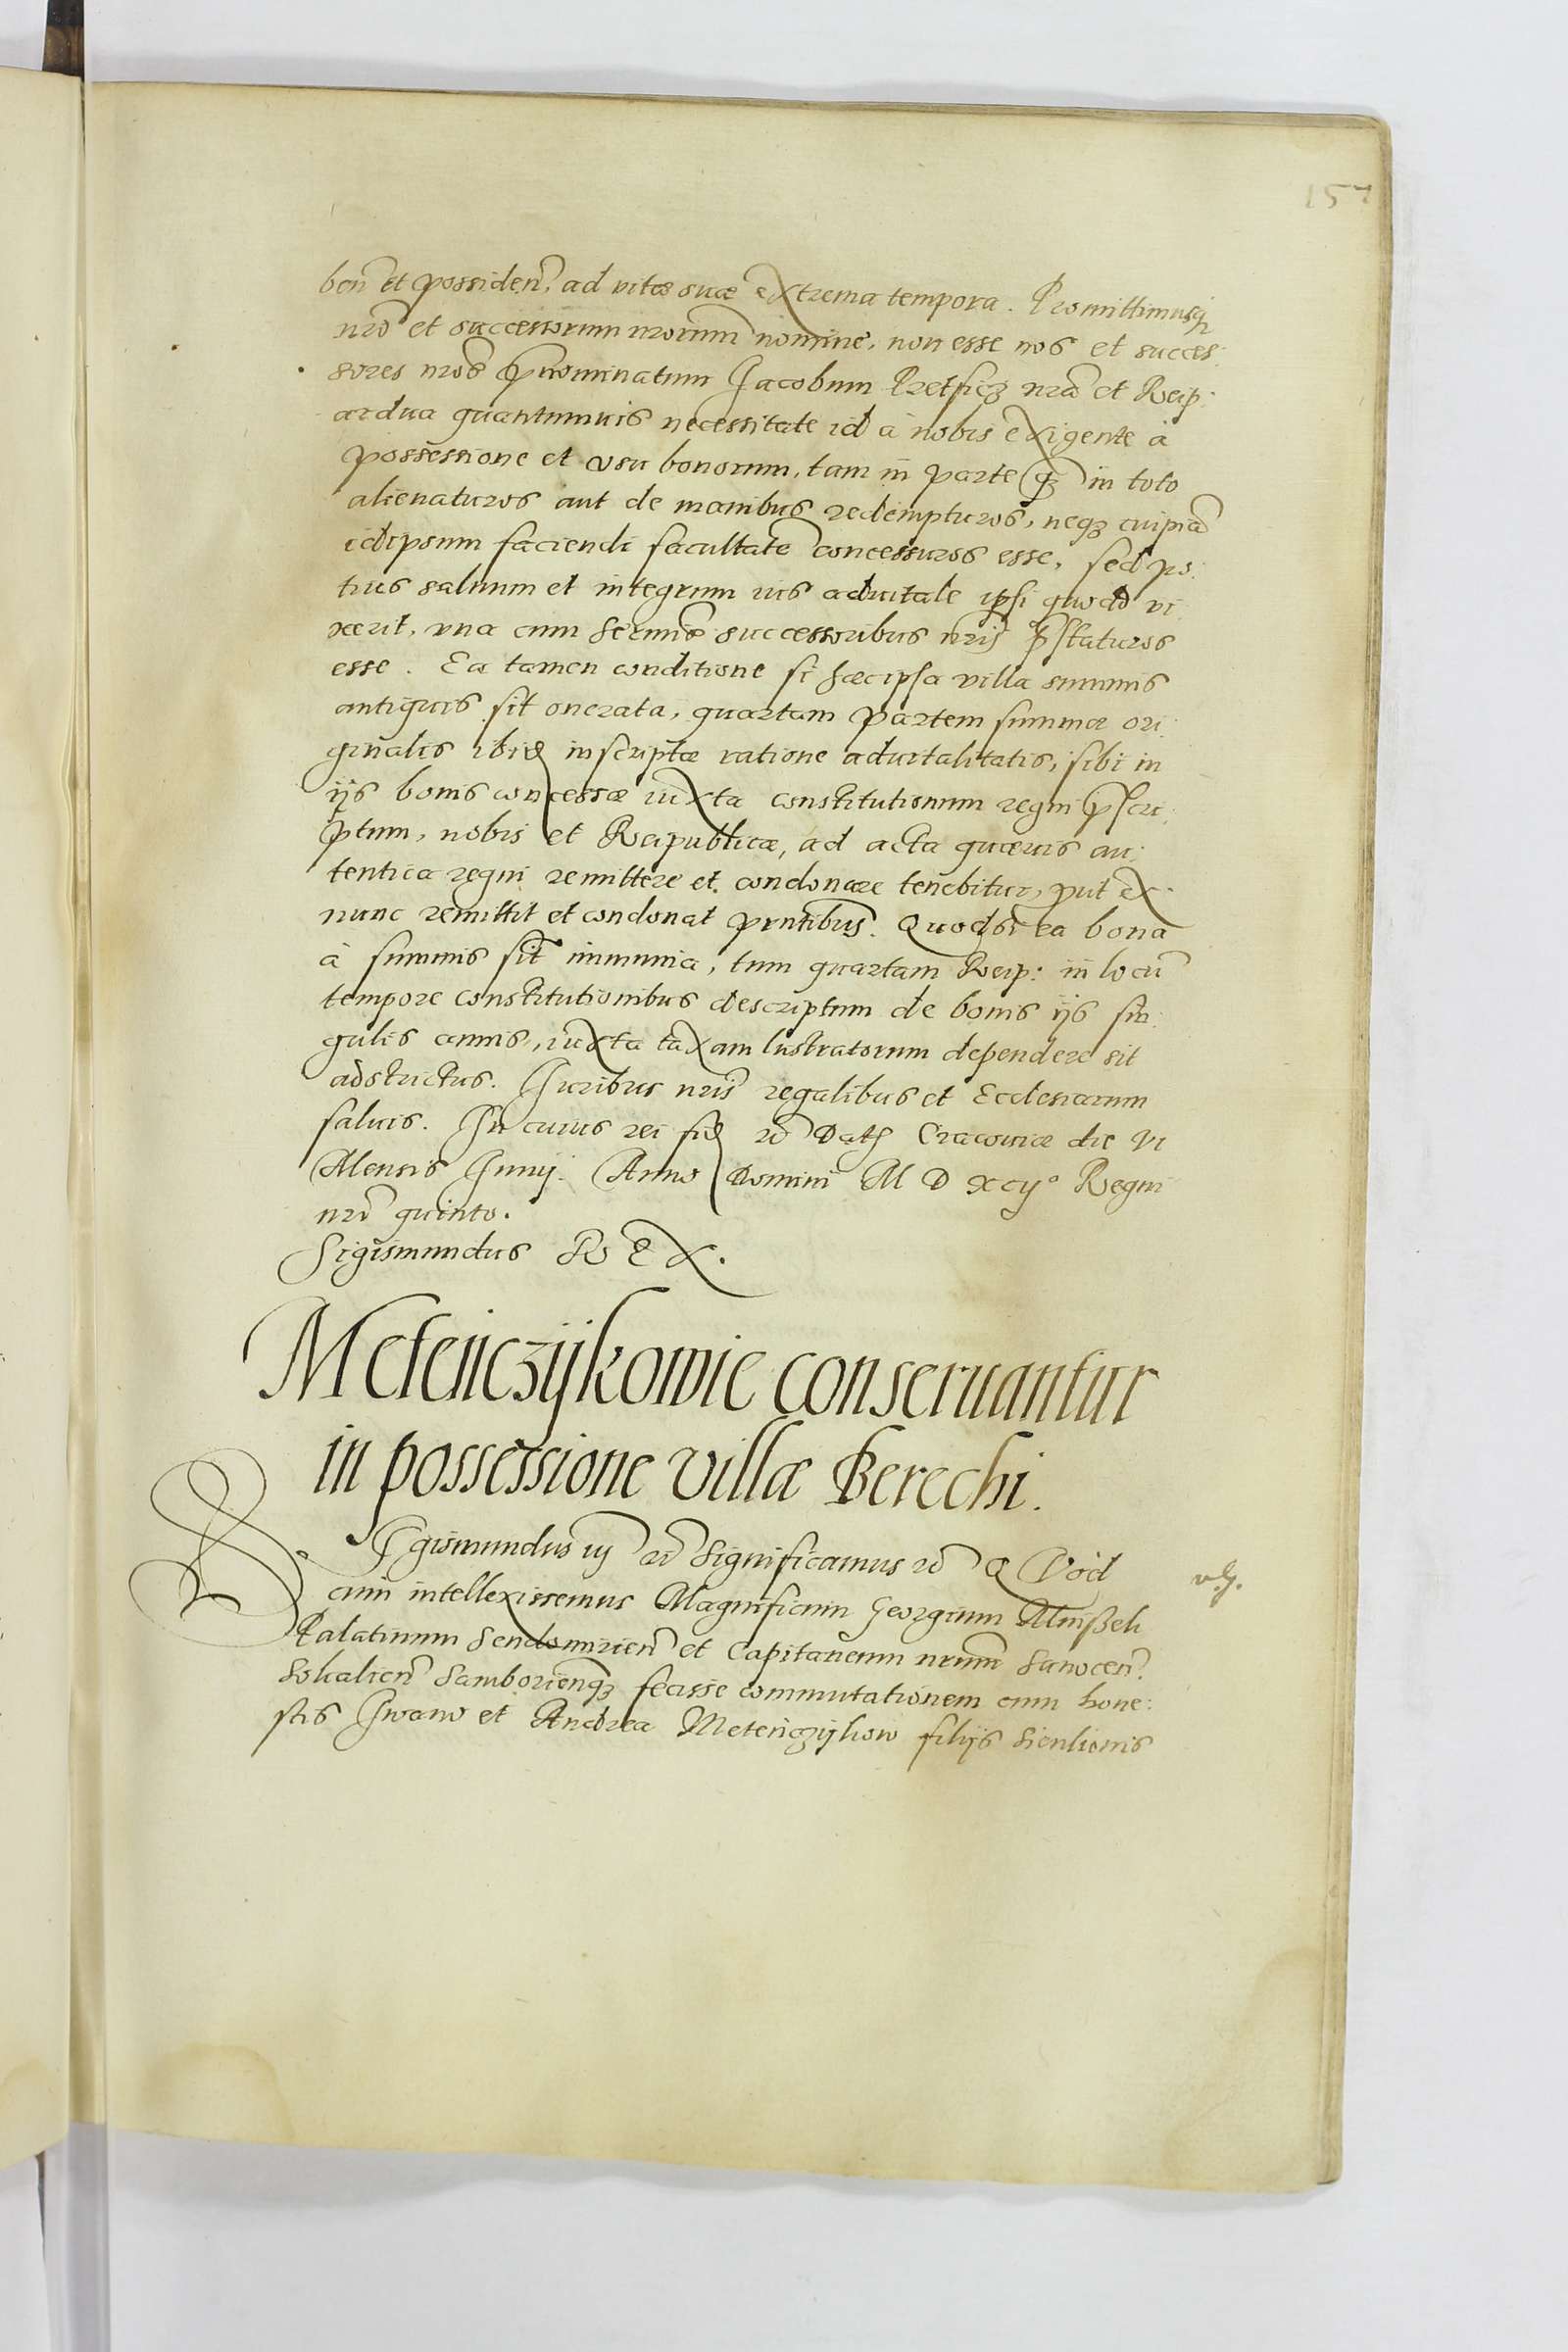 157
ben̄ et possiden̄. ad vitæ suæ extrema tempora. Promittimusq̨
nrō et successorum nrorum nomine, non esse nos et succes:
sores nros̄ p̄nominatum Jacobum Pretficz nrā et Reip:
ardua quantumuis necessitate id à nobis exigente à
possessione et vsu bonorum, tam in parte q̄ in toto
alienaturos aut de manibus redempturos, neq̨ cuipiā
idipsum faciendi facultatē concessuros esse, sed po:
tius saluum et integrum ius aduitale ipsi quoad vi:
xerit, vna cum Sermīs successoribus nr̄is p̄staturos
esse. Ea tamen conditione si hæc ipsa villa summis
antiquis sit onerata, quartam partem summæ ori:
ginalis ibid inscriptæ ratione aduitalitatis, sibi in
ijs bonis concessæ iuxta constitutionum regni p̄scri:
ptum, nobis et Reipublicæ, ad acta quæuis au:
tentica regni remittere et condonare tenebitur, put ex:
nunc remittit et condonat pntibus̄. Quodsi ea bona
à summis sīt immunia, tum quartam Reip: in locū
tempore constitutionibus descriptum de bonis ijs sin:
gulis annis, iuxta taxam lustratorum dependere sit
adstrictus. Juribus nris̄ regalibus et Ecclesiarum
saluis. In cuius rei fid &c̄ Dat Cracouiæ die VI
Mensis Junij. Anno Domini M D XCIJ° Regni
nrī quinto.
Sigismundus REX.
Metenczijkowie conseruantur
in possessione villæ Berechi.
Sigismundus iij &c̄ Significamus &c̄ Quod
cum intellexissemus Magnificum Georgium Mnisзeh
Palatinum Sendomirien̄ et Capitaneum nrum̄ Sanocen̄.
Sokalien̄ Samborienq̨ fecisse commutationem cum hone:
stis Iwano et Andrea Metenczijkow filijs Sienkonis